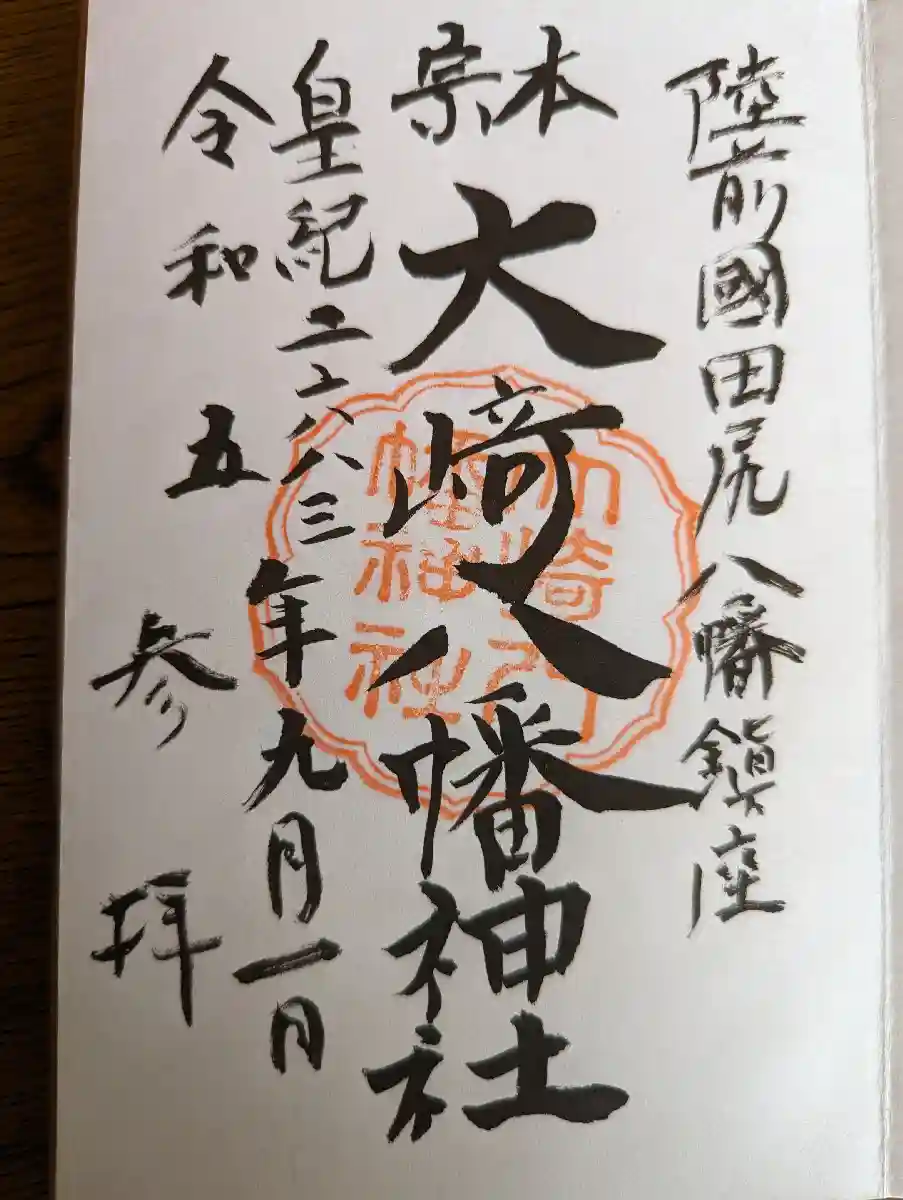 陸前國田尻八幡鎮座
本宗
大﨑八幡神社
皇紀二六八三年九月一日
令和五
参拝
大崎八
幡神社